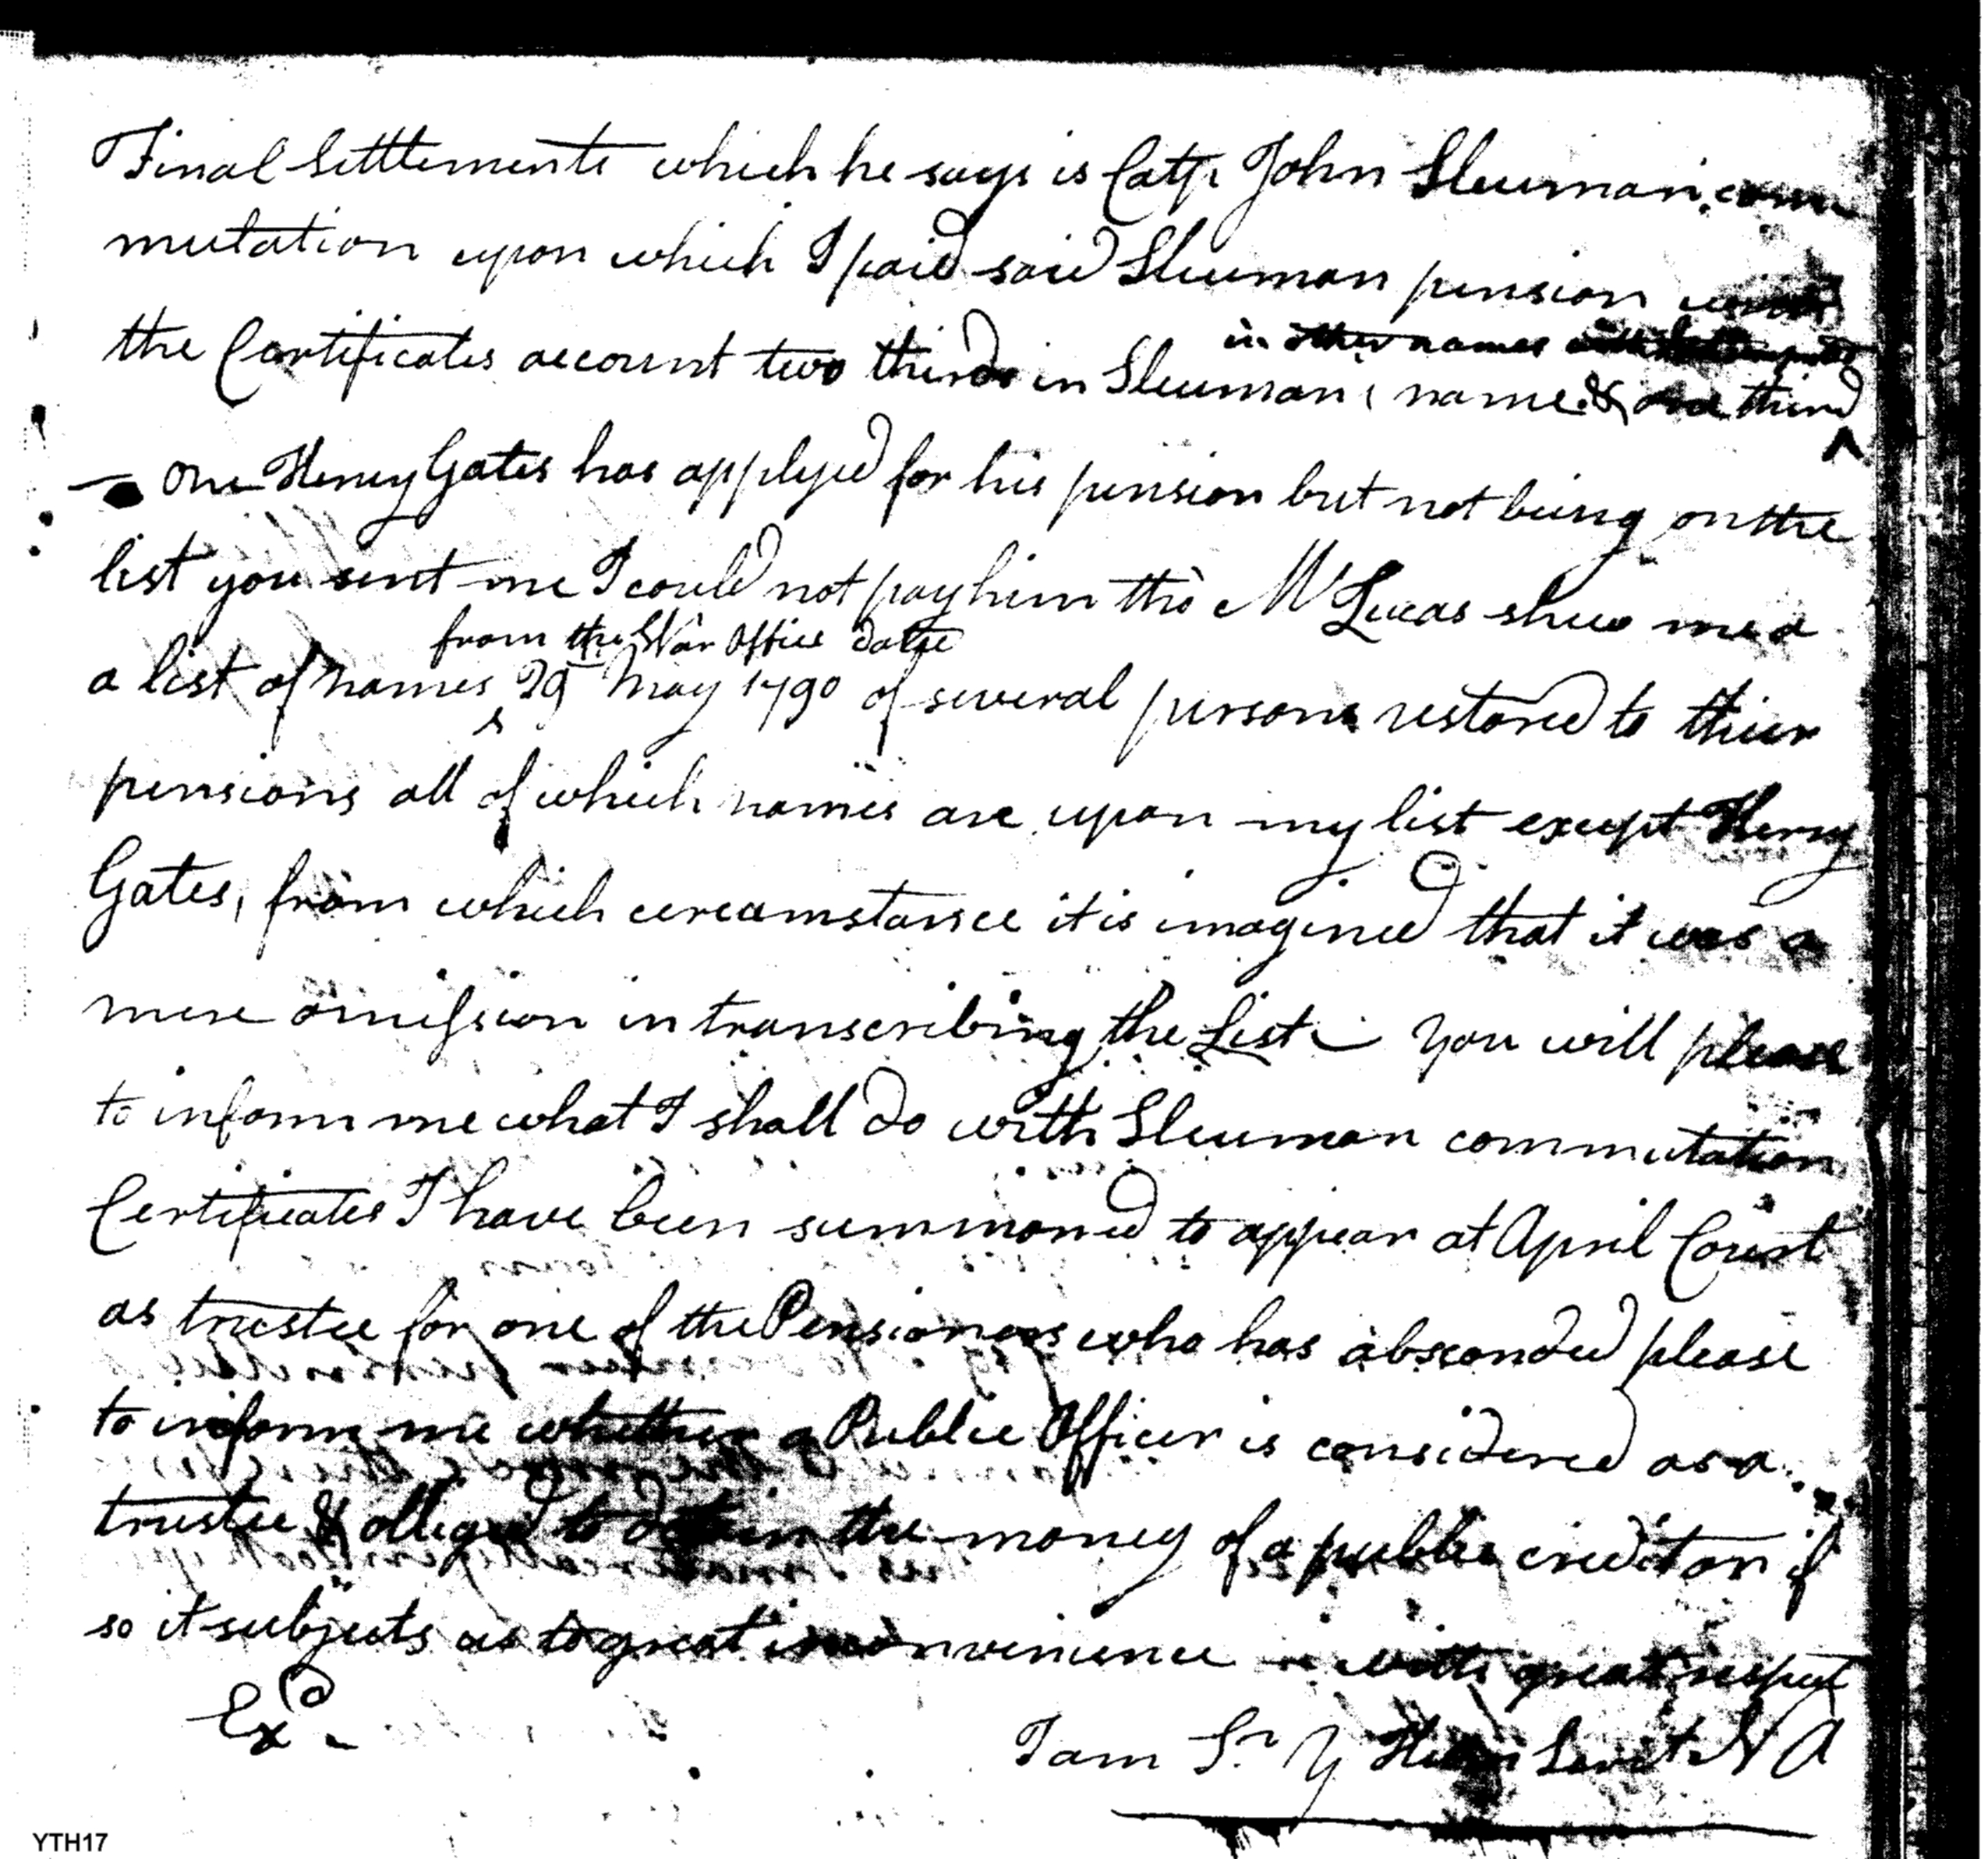 Final Settlements which he says is Capt. John Sleuman, com
mutation upon which I paid said Sleuman pension
in other names
the Certificates account two thirds in Sleumans name & one third
— One Henry Gates has applyed for his pension but not being on the
list you sent me I could not pay him tho Mr Lucas shew me a
from the War Office date
a list of names 29th May 1790 of several persons restored to their
pensions all of which names are upon my list except Henry
Gates, from which cercumstance it is imagined that it was a
mere omission in transcribing the List — You will please
to inform me what I shall do with Sleuman commutation
Certificates I have been summoned to appear at April Court
as trustee for one of the Pensioners who has absconded please
to inform me whether a Public Officer is considered as a
trustee & obliged to detain the money of a public creditor if
so it subjects us to great inconvenience — with great respect
Exd.
I am Sr Y Hum Servt N A
YTH17